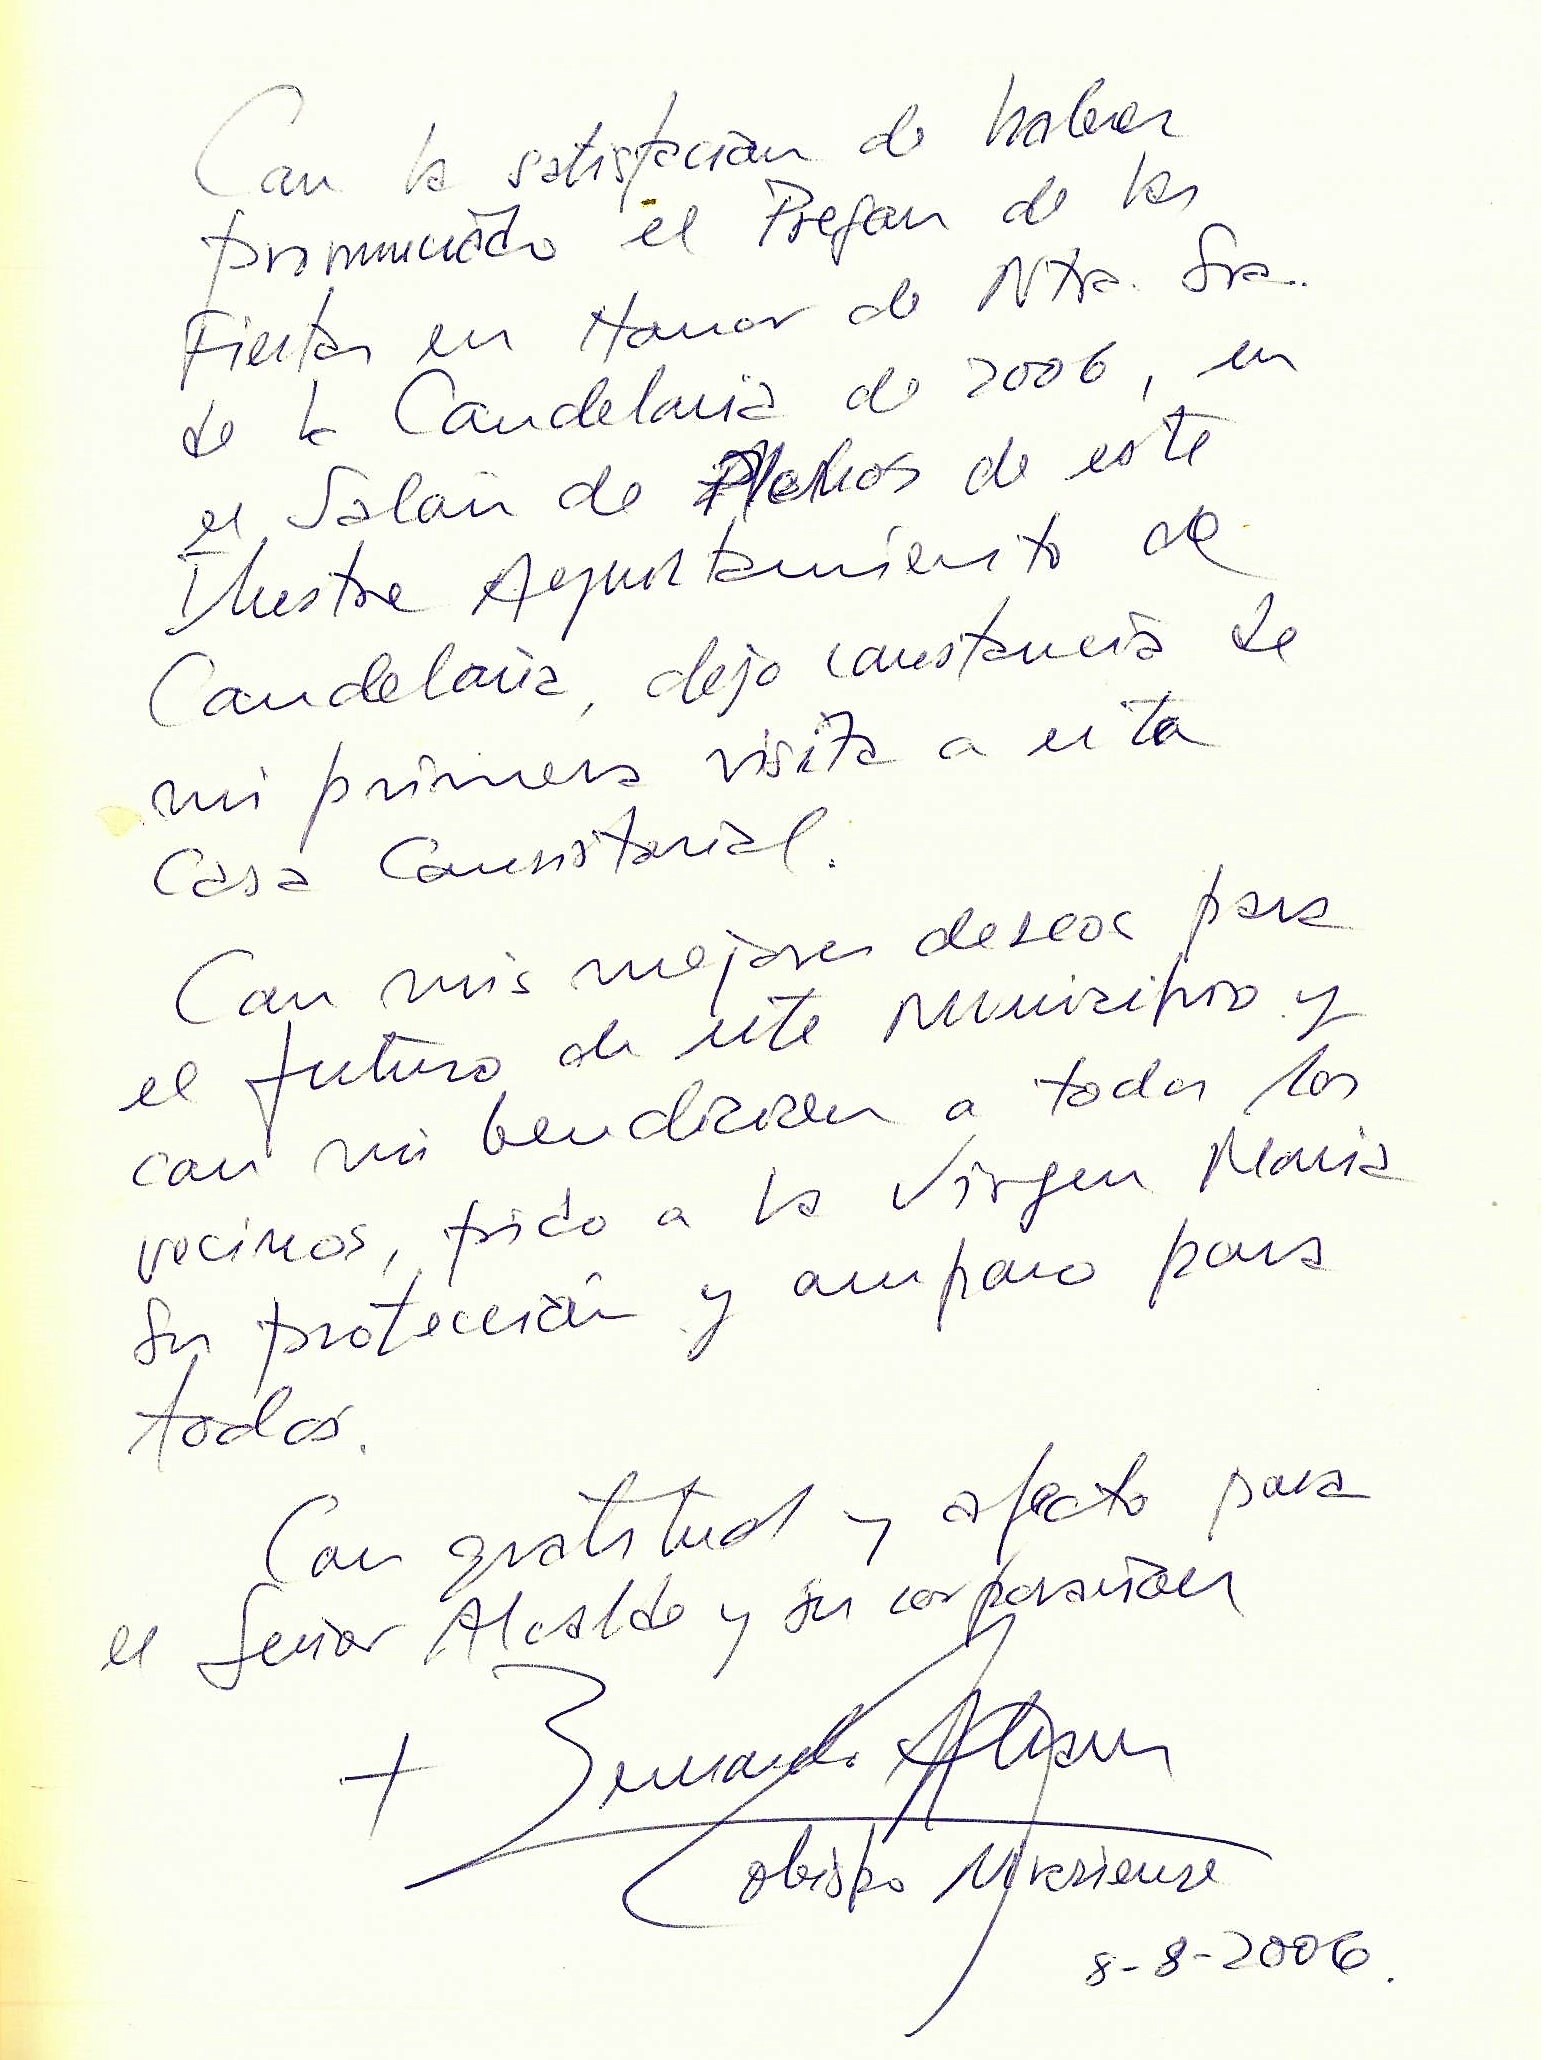 Con la satisfacion de haber
pronunciado el Pregon de las
Fiestas en Honor de Ntra. Sra.
de la Candelaria de 2006, en
el Salón de Plenos de este
Ilustre Ayuntamiento de
Candelaria, dejo constancia de
mi primera visita a esta
Casa Consistorial.
Con mis mejores deseos para
el futuro de este Municipio y
con mi bendición a todos los
vecinos, pido a la Virgen María
su protección y amparo para
todos.
Con gratitud y afecto para
el Señor Alcalde y su corporación
+ Bernardo Álvarez
Obispo Nivariense
8-8-2006.